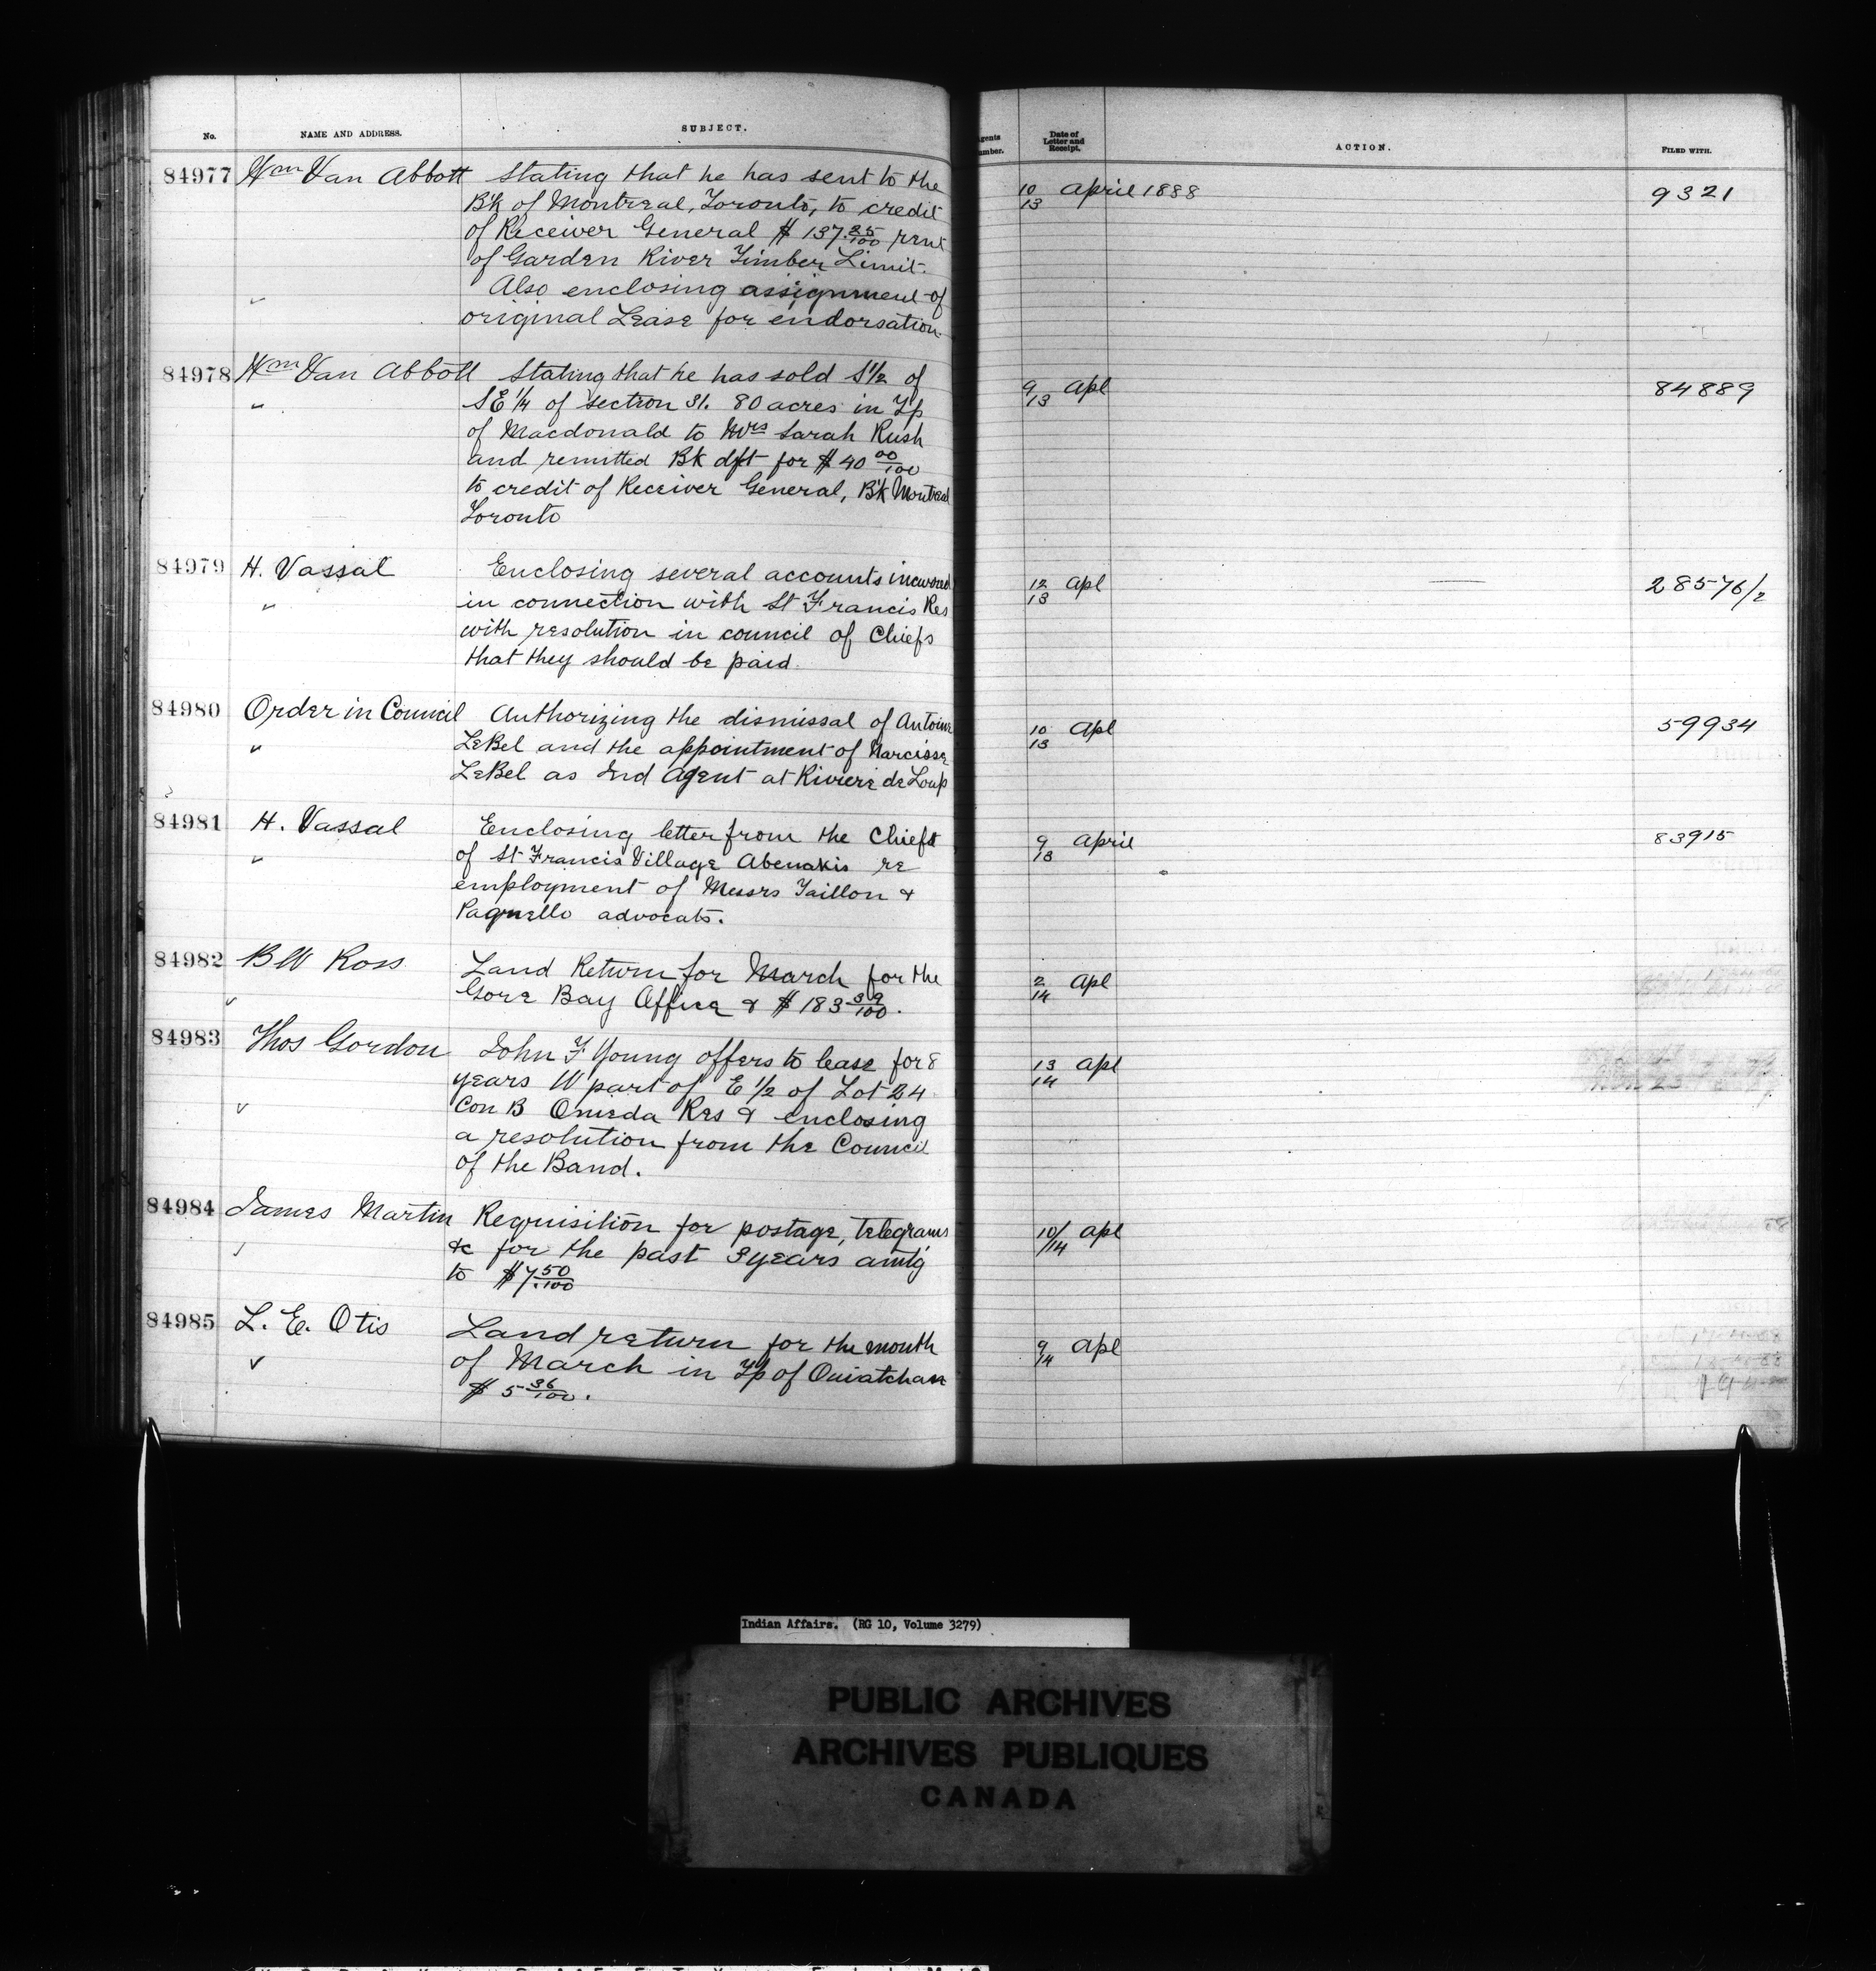 No. NAME AND ADDRESS. SUBJECT. Agents Number. Date of Letter and Receipt. ACTION. FILED WITH.
84977 Wm Van Abbott Stating that he has sent to the 10/13 April 1888 9321
B'k of Montreal, Toronto, to credit
of Receiver General $ 137 35/100 rent
of Garden River Timber Limit.
Also enclosing assignment of
original Lease for endorsation
84978 Wm Van Abbott Stating that he has sold S 1/2 of 9/13 Apl 84889
" SE 1/4 of section 31. 80 acres in Tp
of Macdonald to Mrs Sarah Rush
and remitted Bk dft for $ 40 00/100
to credit of Receiver General, B'k Montreal
Toronto
84979 H. Vassal Enclosing several accounts incurred 12/13 Apl — 28576/2
" in connection with St Francis Res
with resolution in council of Chiefs
that they should be paid.
84980 Order in Council Authorizing the dismissal of Antoine 10/13 Apl 59934
" LeBel and the appointment of Narcisse
LeBel as Ind Agent at Riviere de Loup
84981 H. Vassal Enclosing letter from the Chiefs 9/13 April 83915
" of St Francis Village Abenakis re
employment of Messrs Taillon &
Pagnello advocats.
84982 B W Ross Land Return for March for the 2/14 Apl
Gore Bay Office & $ 183 39/100.
84983 Thos Gordon John F Young offers to lease for 8 13/14 Apl
years W part of E 1/2 of Lot 24
Con B Oneida Res & enclosing
a resolution from the Council
of the Band.
84984 James Martin Requisition for postage, telegrams 10/14 Apl
&c for the past 3 years amt'g
to $ 7.50/100
84985 L. E. Otis Land return for the month 9/14 Apl
of March in Tp of Ouiatchan
$ 5 36/100.
Indian Affairs. (RG 10, Volume 3279)
PUBLIC ARCHIVES
ARCHIVES PUBLIQUES
CANADA